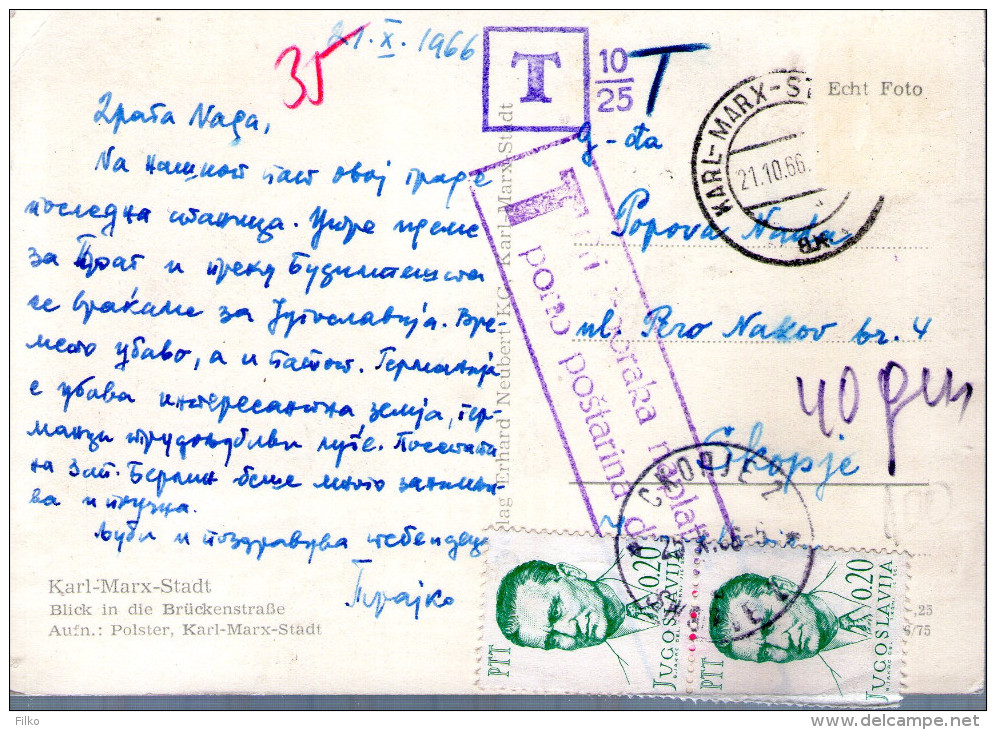 21.X.1966
35
T
10
25
T
Echt Foto
KARL-MARX-ST
21.10.66
Драга Нада,
На нашиот пат овој град е
последна станица. Утре идеме
за Праг и преку Будимпешта
се враќаме за Југославија. Вре-
мето убаво, а и патот. Германија
е убава интересантна земја, гер-
манци трудољубиви луѓе. Посетата
на Зап. Берлин беше многу занимли-
ва и
Љуби и поздравува тебе и деца
Трајко
g-đa
Popova Nada
ul. Pero Nakov br. 4
Skopje
40 дин
T
porto poštarina d
lag Erhard Neubert KG, Karl-Marx-Stadt
СКОПЈЕ 2
Karl-Marx-Stadt
Blick in die Brückenstraße
Aufn.: Polster, Karl-Marx-Stadt
PTT
0.20
JUGOSLAVIJA
PTT
0.20
JUGOSLAVIJA
,25
6/75
Filko
www.delcampe.net